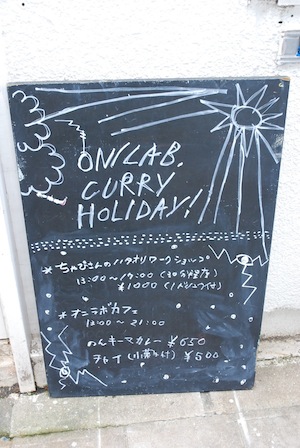 ONLAB.
CURRY
HOLIDAY!
* ちゃびさんのハタオリワークショップ
13:00〜19:00 (30分程度)
¥1000
* オニラボカフェ
12:00〜21:00
キーマカレー ¥650
チャイ (小菓子付) ¥500